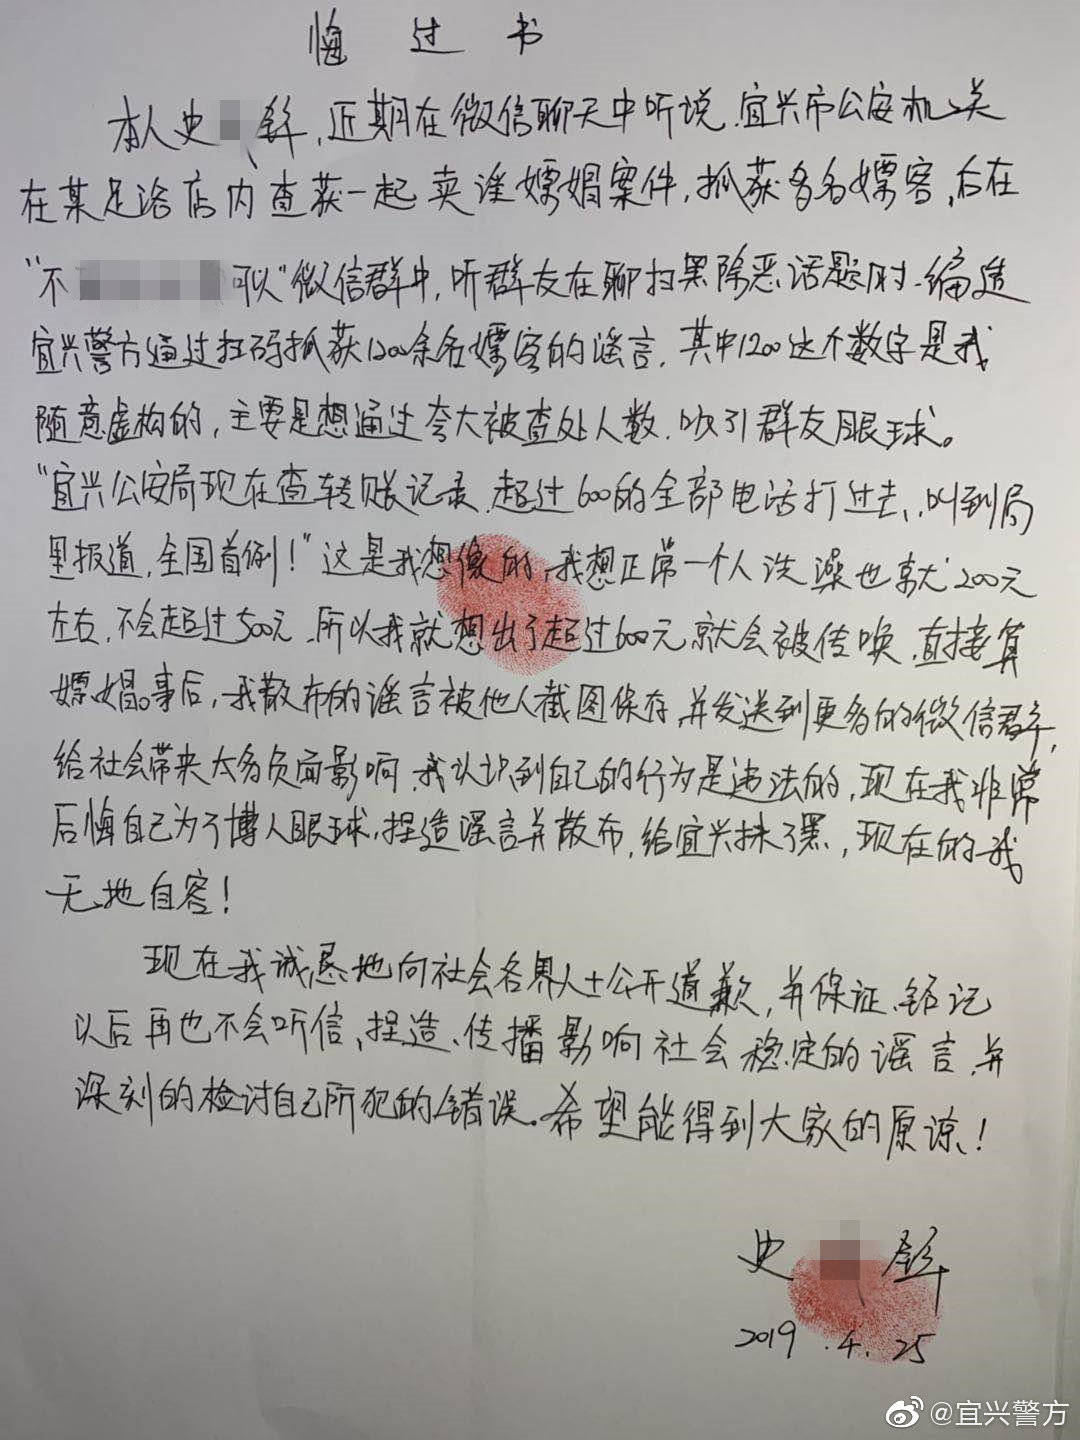 悔过书
本人史 锋，近期在微信聊天中听说，宜兴市公安机关
在某足浴店内查获一起卖淫嫖娼案件，抓获多名嫖客，后在
“不 可以”微信群中，听群友在聊扫黑除恶话题时，编造
宜兴警方通过扫码抓获1200余名嫖客的谣言，其中1200这个数字是我
随意虚构的，主要是想通过夸大被查处人数，吸引群友眼球。
“宜兴公安局现在查转账记录，超过600的全部电话打过去，叫到局
里报道，全国首例！”这是我想像的，我想正常一个人洗澡也就200元
左右，不会超过500元，所以我就想出了超过600元就会被传唤，直接算
嫖娼。事后，我散布的谣言被他人截图保存，并发送到更多的微信群，
给社会带来太多负面影响，我认识到自己的行为是违法的，现在我非常
后悔自己为了博人眼球，捏造谣言并散布，给宜兴抹了黑，现在的我
无地自容！
现在我诚恳地向社会各界人士公开道歉，并保证、铭记
以后再也不会听信、捏造、传播影响社会稳定的谣言，并
深刻的检讨自己所犯的错误。希望能得到大家的原谅！
史 锋
2019.4.25
@宜兴警方